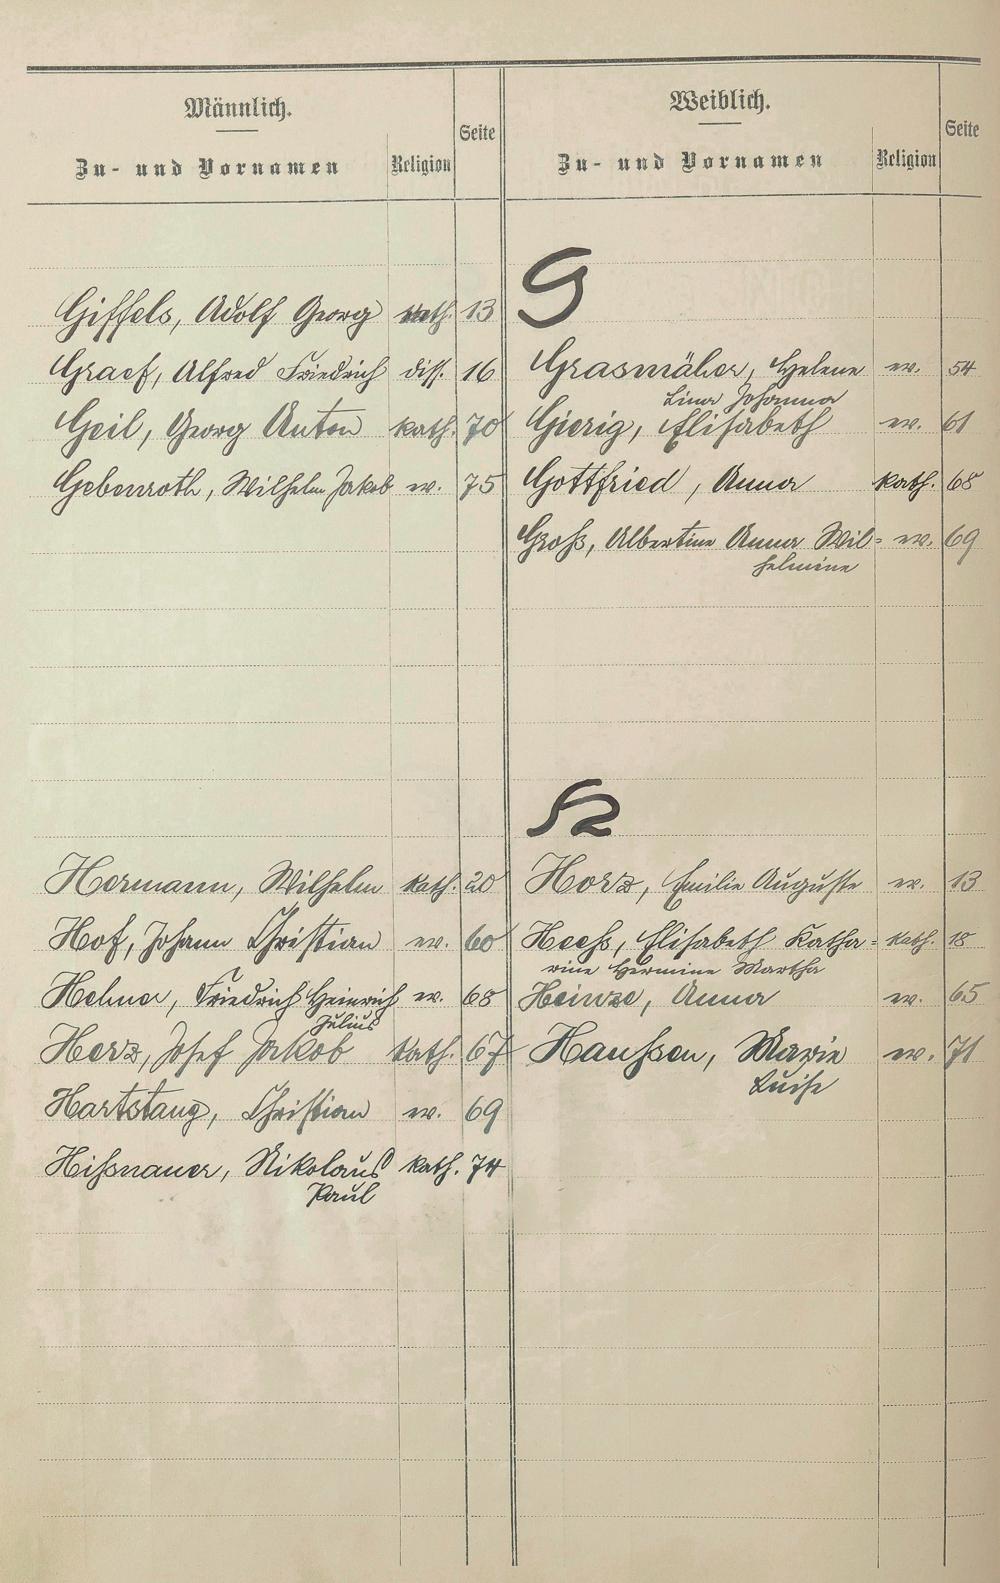 Männlich.
Zu- und Vornamen
Religion
Seite
Giffels, Adolf Georg kath. 13
Graef, Alfred Friedrich diss. 16
Geil, Georg Anton kath. 70
Gebenroth, Wilhelm Jakob ev. 75
Hermann, Wilhelm kath. 20
Hof, Johann Christian ev. 60
Hehner, Friedrich Heinrich ev. 68
Julius
Herz, Josef Jakob kath. 67
Hartstang, Christian ev. 69
Hißnauer, Nikolaus kath. 74
Paul
Weiblich.
Zu- und Vornamen
Religion
Seite
G
Grasmäher, Helene ev. 54
Lina Johanna
Gierig, Elisabeth ev. 61
Gottfried, Anna kath. 68
Groß, Albertine Anna Wil= ev. 69
helmine
H
Horz, Emilie Auguste ev. 13
Heeß, Elisabeth Katha= kath. 18
rine Hermine Martha
Heinze, Anna ev. 65
Haußen, Marie ev. 71
Luise